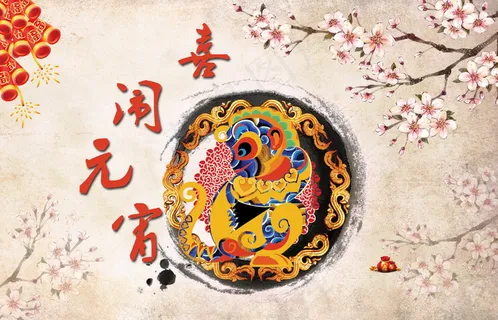 喜闹元宵